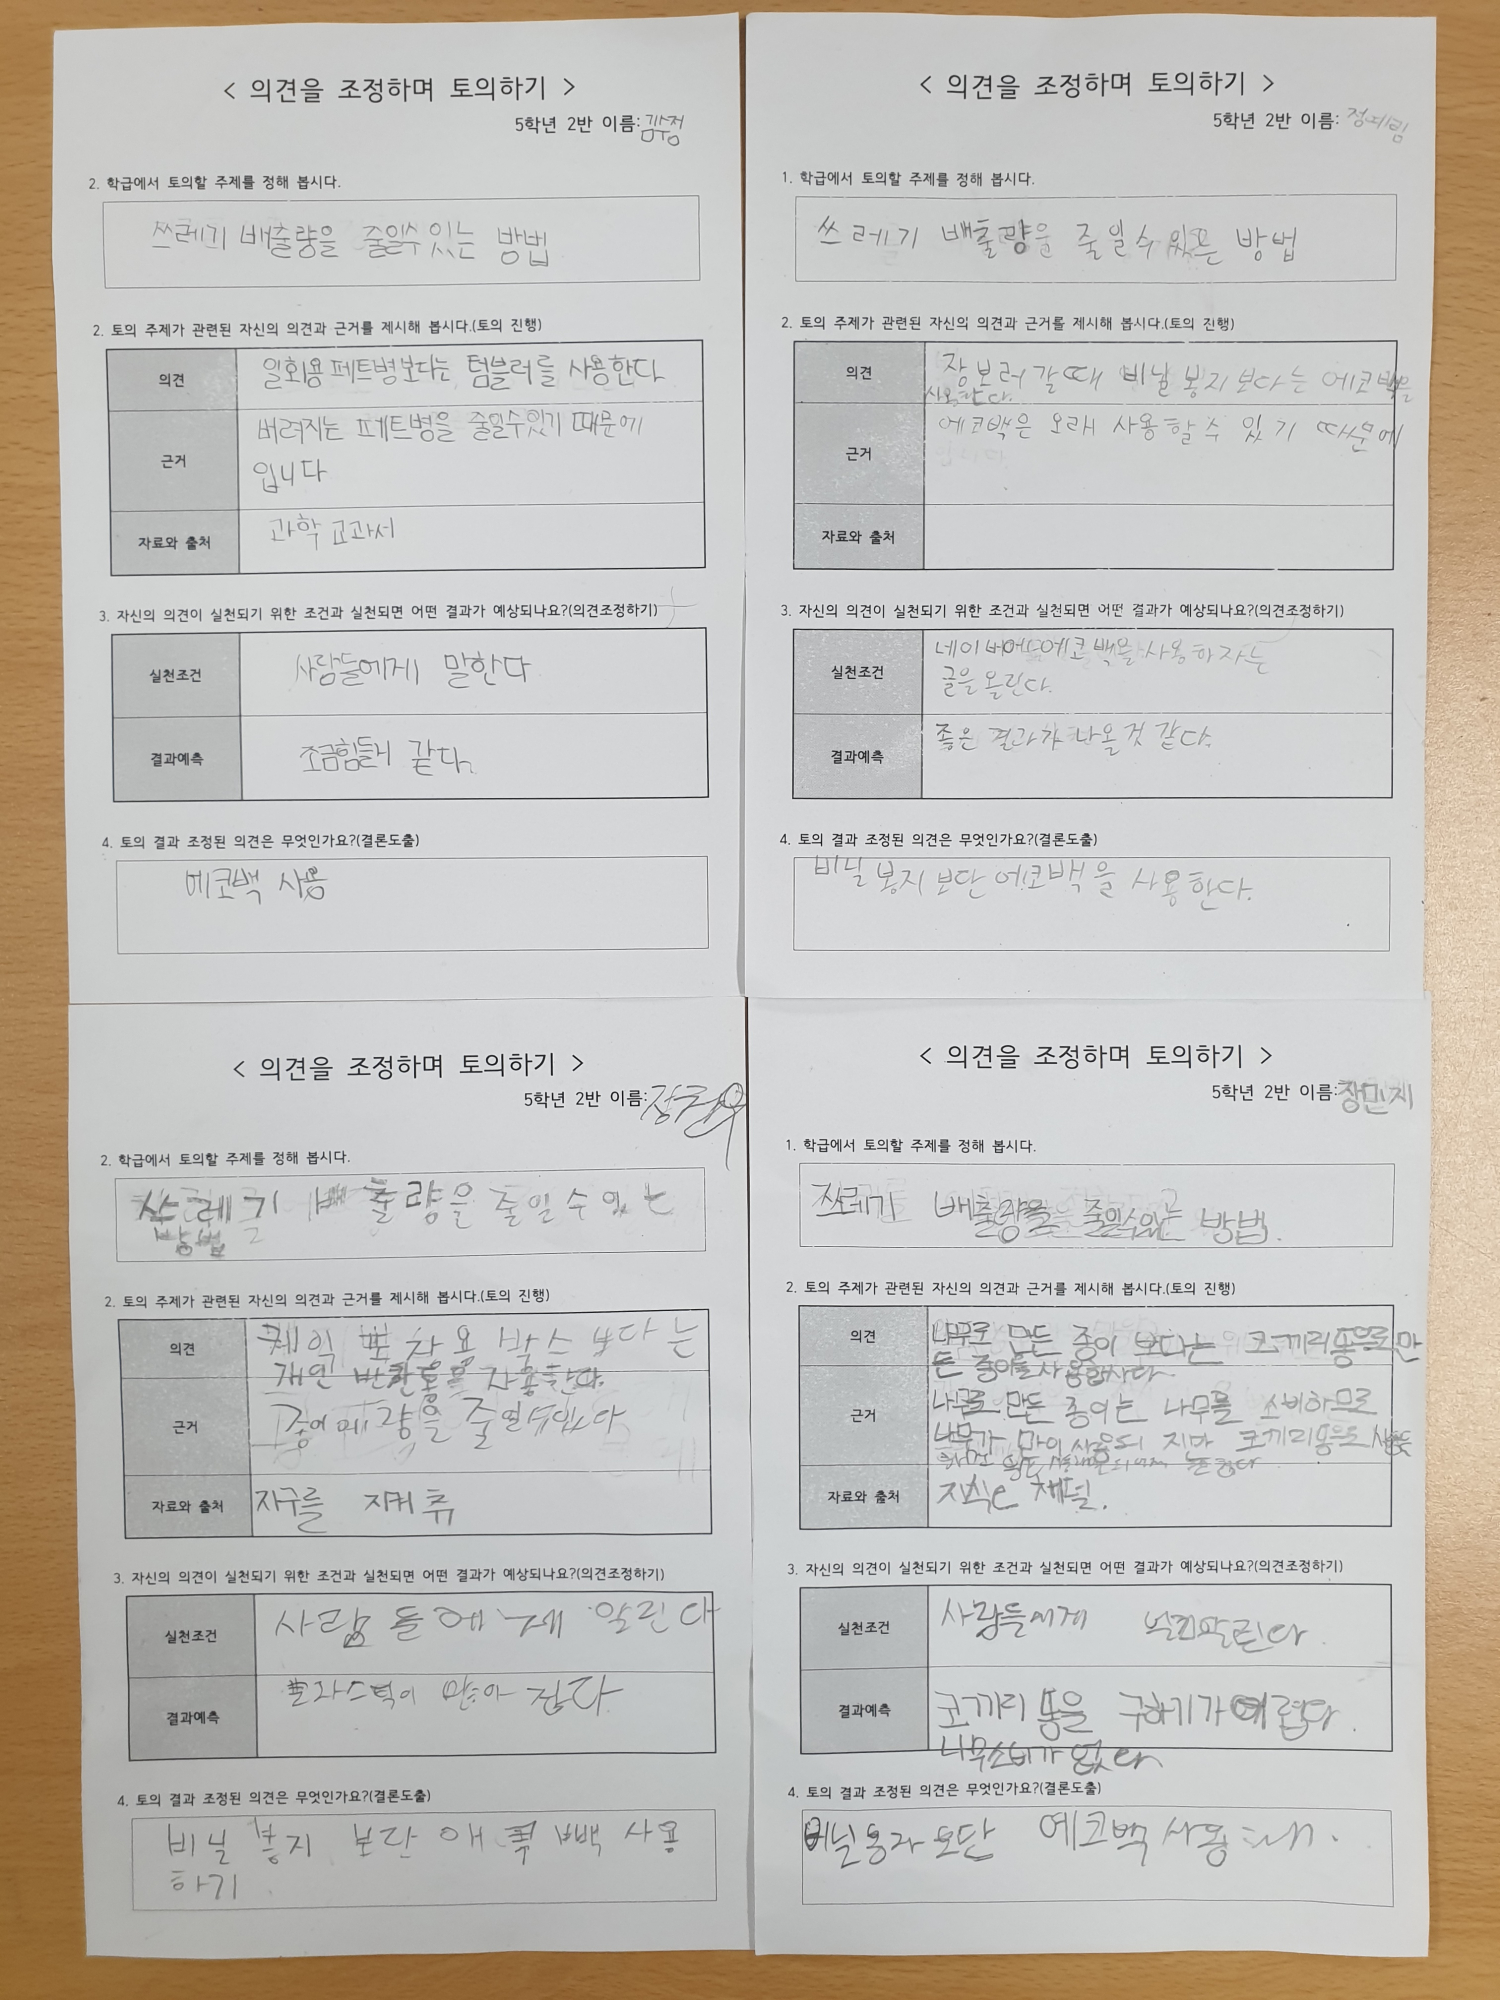 < 의견을 조정하며 토의하기 >
5학년 2반 이름:
2. 학급에서 토의할 주제를 정해 봅시다.
쓰레기 배출량을 줄일수있는 방법
2. 토의 주제가 관련된 자신의 의견과 근거를 제시해 봅시다.(토의 진행)
의견
일회용 페트병보다는 텀블러를 사용한다
근거
버려지는 페트병을 줄일수있기 때문에
입니다
자료와 출처
과학 교과서
3. 자신의 의견이 실천되기 위한 조건과 실천되면 어떤 결과가 예상되나요?(의견조정하기)
실천조건
사람들에게 말한다
결과예측
조금힘들거 같다.
4. 토의 결과 조정된 의견은 무엇인가요?(결론도출)
에코백 사용
< 의견을 조정하며 토의하기 >
5학년 2반 이름: 정예림
1. 학급에서 토의할 주제를 정해 봅시다.
쓰레기 배출량을 줄일수 있는 방법
2. 토의 주제가 관련된 자신의 의견과 근거를 제시해 봅시다.(토의 진행)
의견
장보러 갈때 비닐 봉지보다는 에코백을
사용한다.
근거
에코백은 오래 사용할수 있기 때문에
자료와 출처
3. 자신의 의견이 실천되기 위한 조건과 실천되면 어떤 결과가 예상되나요?(의견조정하기)
실천조건
네이버에 에코백을 사용하자는
글을 올린다.
결과예측
좋은 결과가 나올것 같다.
4. 토의 결과 조정된 의견은 무엇인가요?(결론도출)
비닐 봉지 보단 에코백을 사용한다.
< 의견을 조정하며 토의하기 >
5학년 2반 이름:
2. 학급에서 토의할 주제를 정해 봅시다.
쓰레기 배출량을 줄일수있는
방법
2. 토의 주제가 관련된 자신의 의견과 근거를 제시해 봅시다.(토의 진행)
의견
케익 포장용 박스 보다는
개인 반찬통을 사용한다.
근거
줄일수있다
자료와 출처
지구를 지켜츄
3. 자신의 의견이 실천되기 위한 조건과 실천되면 어떤 결과가 예상되나요?(의견조정하기)
실천조건
사람들에게 알린다
결과예측
플라스틱이 많아 진다
4. 토의 결과 조정된 의견은 무엇인가요?(결론도출)
비닐 봉지 보단 애코백 사용
하기
< 의견을 조정하며 토의하기 >
5학년 2반 이름:장민지
1. 학급에서 토의할 주제를 정해 봅시다.
쓰레기 배출량을 줄일수있는 방법.
2. 토의 주제가 관련된 자신의 의견과 근거를 제시해 봅시다.(토의 진행)
의견
나무로 만든 종이 보다는 코끼리똥으로만
든 종이를 사용합시다.
근거
나무로 만든 종이는 나무를 소비하므로
나무가 많이 사용되 지만 코끼리똥으로
자료와 출처
지식e 채널.
3. 자신의 의견이 실천되기 위한 조건과 실천되면 어떤 결과가 예상되나요?(의견조정하기)
실천조건
사람들에게 널리알린다.
결과예측
코끼리 똥을 구하기가어렵다.
나무소비가 없다
4. 토의 결과 조정된 의견은 무엇인가요?(결론도출)
보단 에코백 사용